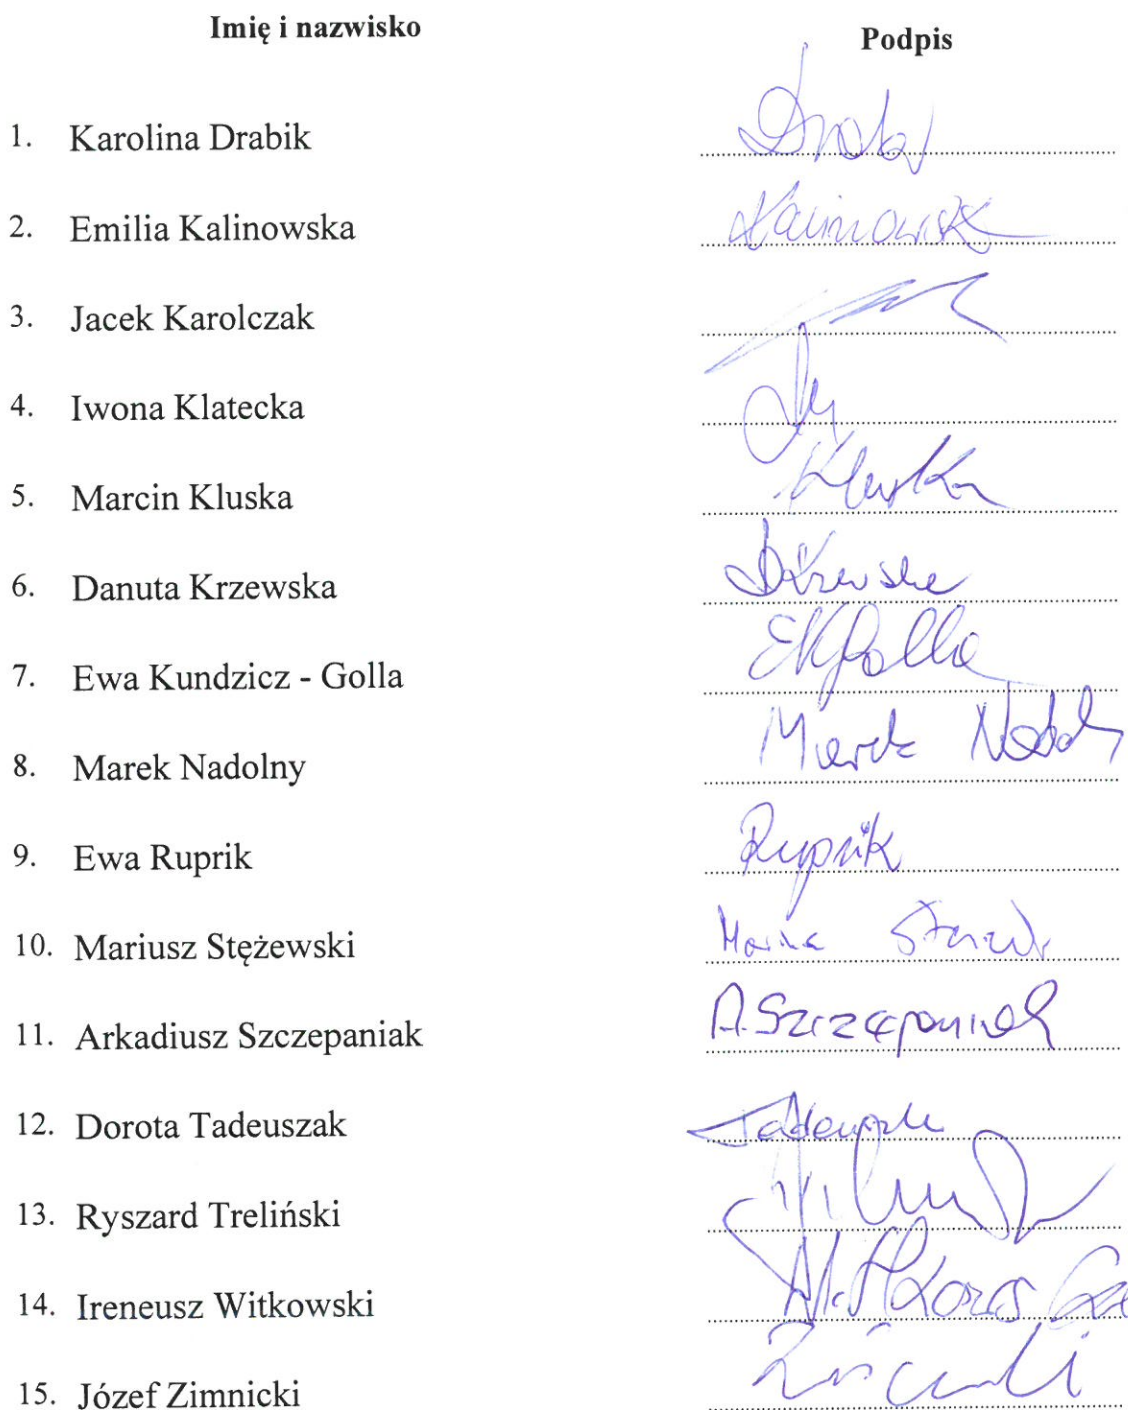 Imię i nazwisko Podpis
1. Karolina Drabik
2. Emilia Kalinowska Kalinowsk
3. Jacek Karolczak
4. Iwona Klatecka
5. Marcin Kluska Kluska
6. Danuta Krzewska DKrzewska
7. Ewa Kundzicz - Golla EKGolla
8. Marek Nadolny Marek
9. Ewa Ruprik Ruprik
10. Mariusz Stężewski
11. Arkadiusz Szczepaniak A. Szczepaniak
12. Dorota Tadeuszak
13. Ryszard Treliński
14. Ireneusz Witkowski
15. Józef Zimnicki